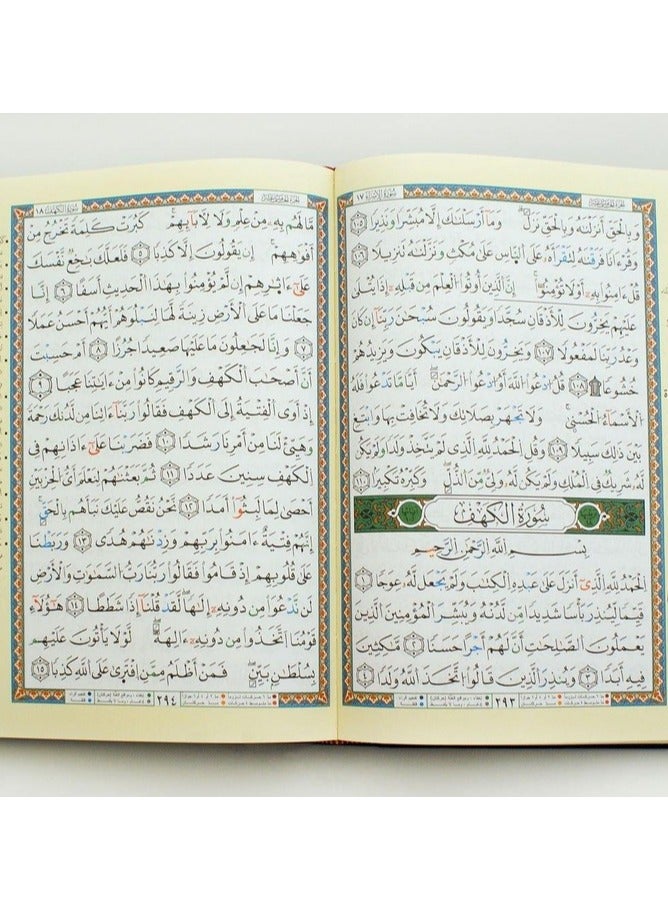 سورة الإسراء ١٧
وبالحق أنزلنه وبالحق نزل وما أرسلنك إلا مبشرا ونذيرا ١٠٥
وقرءانا فرقنه لتقرأه على الناس على مكث ونزلنه تنزيلا ١٠٦
قل ءامنوا به أو لا تؤمنوا إن الذين أوتوا العلم من قبله إذا يتلى
عليهم يخرون للأذقان سجدا ويقولون سبحن ربنا إن كان
وعد ربنا لمفعولا ١٠٧ ويخرون للأذقان يبكون ويزيدهم
خشوعا ۩ ١٠٨ قل ادعوا الله أو ادعوا الرحمن أيا ما تدعوا فله
الأسماء الحسنى ولا تجهر بصلاتك ولا تخافت بها وابتغ
بين ذلك سبيلا ١٠٩ وقل الحمد لله الذي لم يتخذ ولدا ولم يكن
له شريك في الملك ولم يكن له ولي من الذل وكبره تكبيرا
سورة الكهف
بسم الله الرحمن الرحيم
الحمد لله الذي أنزل على عبده الكتب ولم يجعل له عوجا ١
قيما لينذر بأسا شديدا من لدنه ويبشر المؤمنين الذين
يعملون الصلحت أن لهم أجرا حسنا ٢ مكثين
فيه أبدا ٣ وينذر الذين قالوا اتخذ الله ولدا ٤
٢٩٣
سورة الكهف ١٨
ما لهم به من علم ولا لأبائهم كبرت كلمة تخرج من
أفوههم إن يقولون إلا كذبا ٥ فلعلك بخع نفسك
على ءاثرهم إن لم يؤمنوا بهذا الحديث أسفا ٦ إنا
جعلنا ما على الأرض زينة لها لنبلوهم أيهم أحسن عملا
٧ وإنا لجعلون ما عليها صعيدا جرزا ٨ أم حسبت
أن أصحب الكهف والرقيم كانوا من ءايتنا عجبا ٩
إذ أوى الفتية إلى الكهف فقالوا ربنا ءاتنا من لدنك رحمة
وهيئ لنا من أمرنا رشدا ١٠ فضربنا على ءاذانهم في
الكهف سنين عددا ١١ ثم بعثنهم لنعلم أي الحزبين
أحصى لما لبثوا أمدا ١٢ نحن نقص عليك نبأهم بالحق
إنهم فتية ءامنوا بربهم وزدنهم هدى ١٣ وربطنا
على قلوبهم إذ قاموا فقالوا ربنا رب السموت والأرض
لن ندعوا من دونه إلها لقد قلنا إذا شططا ١٤ هؤلاء
قومنا اتخذوا من دونه ءالهة لولا يأتون عليهم
بسلطن بين فمن أظلم ممن افترى على الله كذبا ١٥
٢٩٤